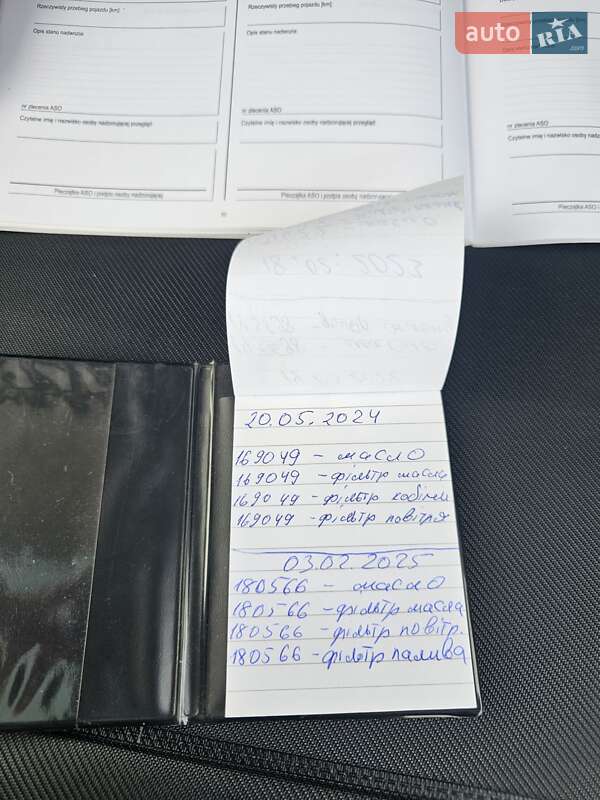 Rzeczywisty przebieg pojazdu [km]
Opis stanu nadwozia:
nr zlecenia ASO
Czytelne imię i nazwisko osoby nadzorującej przegląd:
Pieczątka ASO i podpis osoby nadzorującej
Rzeczywisty przebieg pojazdu [km]
Opis stanu nadwozia:
nr zlecenia ASO
Czytelne imię i nazwisko osoby nadzorującej przegląd:
Pieczątka ASO i podpis osoby nadzorującej
nr zlecenia ASO
Czytelne imię i nazwisko
Pieczątka ASO i
auto RIA .com
18.02.2023
20.05.2024
169049 - масло
169049 - фільтр масла
169049 - фільтр кабіни
169049 - фільтр повітря
03.02.2025
180566 - масло
180566 - фільтр масла
180566 - фільтр повітр.
180566 - фільтр палива